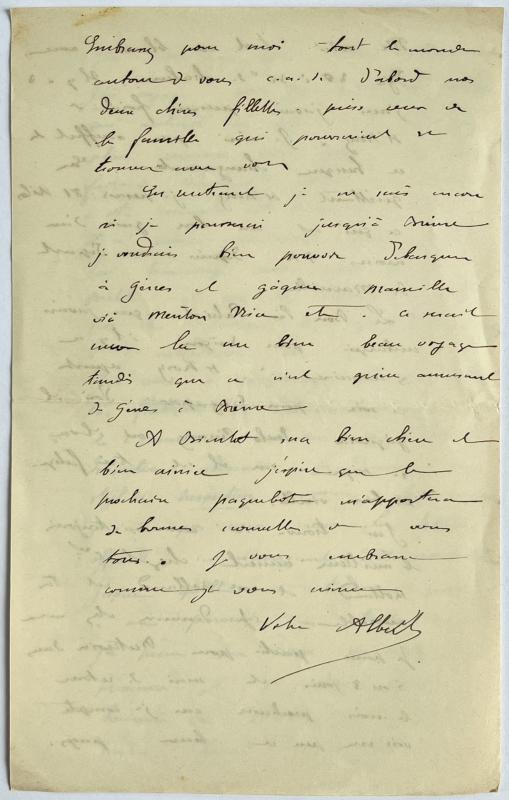 Embrassez pour moi tout le monde
autour de vous c.a.d. d'abord nos
deux chères fillettes. puis ceux de
la famille qui pourraient se
trouver avec vous
En rentrant je ne sais encore
si je pousserai jusqu'à
je voudrais bien pouvoir débarquer
à Gênes et gagner Marseille
viâ Menton Nice etc. ce serait
encore là un bien beau voyage
tandis que ce n'est guère amusant
de Gênes à
A bientôt ma bien chère et
bien aimée j'espère que le
prochain paquebot m'apportera
de bonnes nouvelles de vous
tous. Je vous embrasse
comme je vous aime
Votre Albert